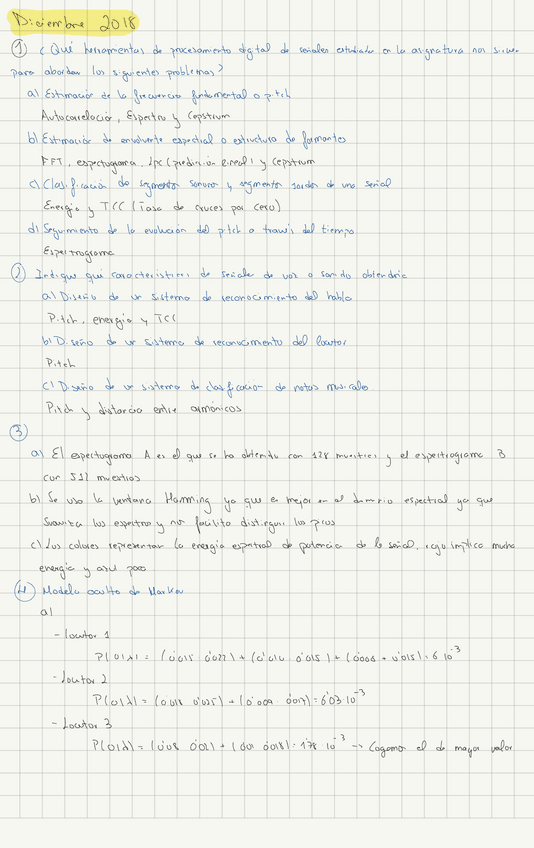 Diciembre 2018
① ¿Qué herramientas de procesamiento digital de señales estudiadas en la asignatura nos sirven
para abordar los siguientes problemas?
a) Estimación de la frecuencia fundamental o pitch
Autocorrelación, Espectro y Cepstrum
b) Estimación de envolvente espectral o estructura de formantes
FFT, espectograma, lpc (predicción lineal) y Cepstrum
c) Clasificación de segmentos sonoros y segmentos sordos de una señal
Energía y TCC (Tasa de cruces por cero)
d) Seguimiento de la evolución del pitch a través del tiempo
Espectrograma
② Indique qué características de señales de voz o sonido obtendría
a) Diseño de un sistema de reconocimiento del habla
Pitch, energía y TCC
b) Diseño de un sistema de reconocimiento del locutor
Pitch
c) Diseño de un sistema de clasificación de notas musicales
Pitch y distancia entre armónicos
③
a) El espectograma A es el que se ha obtenido con 128 muestras y el espectrograma B
con 512 muestras
b) Se usa la ventana Hamming ya que es mejor en el dominio espectral ya que
suaviza los espectros y nos facilita distinguir los picos
c) Los colores representan la energía espectral de potencia de la señal, rojo implica mucha
energía y azul poca
④ Modelo oculto de Markov
a)
- Locutor 1
P(O|λ) = (0'015 · 0'022) + (0'010 · 0'015) + (0'008 · 0'015) = 6·10⁻³
- Locutor 2
P(O|λ) = (0'018 · 0'025) + (0'009 · 0'017) = 6'03·10⁻³
- Locutor 3
P(O|λ) = (0'08 · 0'021) + (0'01 · 0'018) = 1'78·10⁻³ → Cogemos el de mayor valor